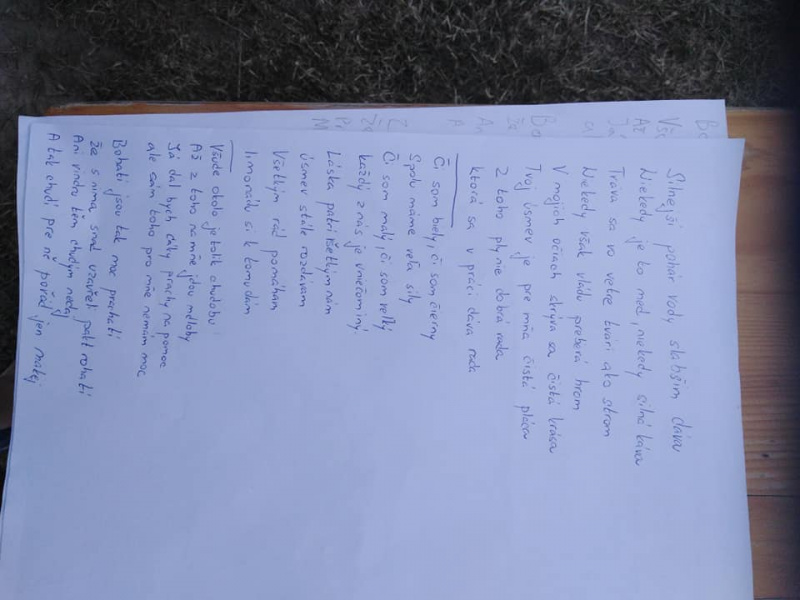 Silnejší pohár vody slabším dáva
Niekedy je to med, niekedy silná káva
Trava sa vo vetre tvári ako strom
Niekedy však vládu preberá hrom
V mojich očiach skrýva sa čistá krása
Tvoj úsmev je pre mňa čistá pláca
Z toho plynie dobrá rada
ktorá sa v práci dáva rada
Či som biely, či som čierny
Spolu máme veľa sily
Či som malý, či som veľký
každý z nás je výnimočný
Láska patrí všetkým nám
úsmev stále rozdávam
Všetkým rád pomáham
limonádu si k tomu dám
Všude okolo je tolik chudoby
Až z toho na mně jdou mdloby
Já dal bych čáky prachy na pomoc
ale sám toho pro mne nemám moc
Bohatí jsou tak moc prohnatí
že s nima snad uzavřel pakt rohatí
Ani vindru těm chudým nedaj
A tak chudí pre ně pořád jen makej